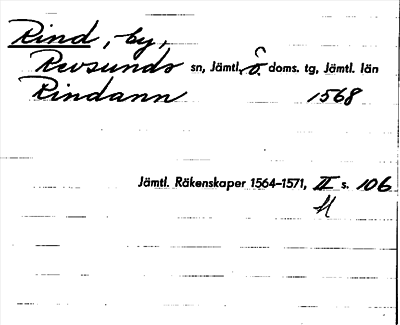 Rind, by,
Revsunds sn, Jämtl. ö. doms. tg, Jämtl. län
Rindann 1568
Jämtl. Räkenskaper 1564–1571, II s. 106